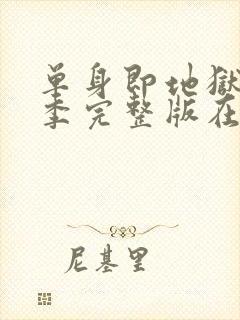 单身即地狱
季完整版在
尼基里